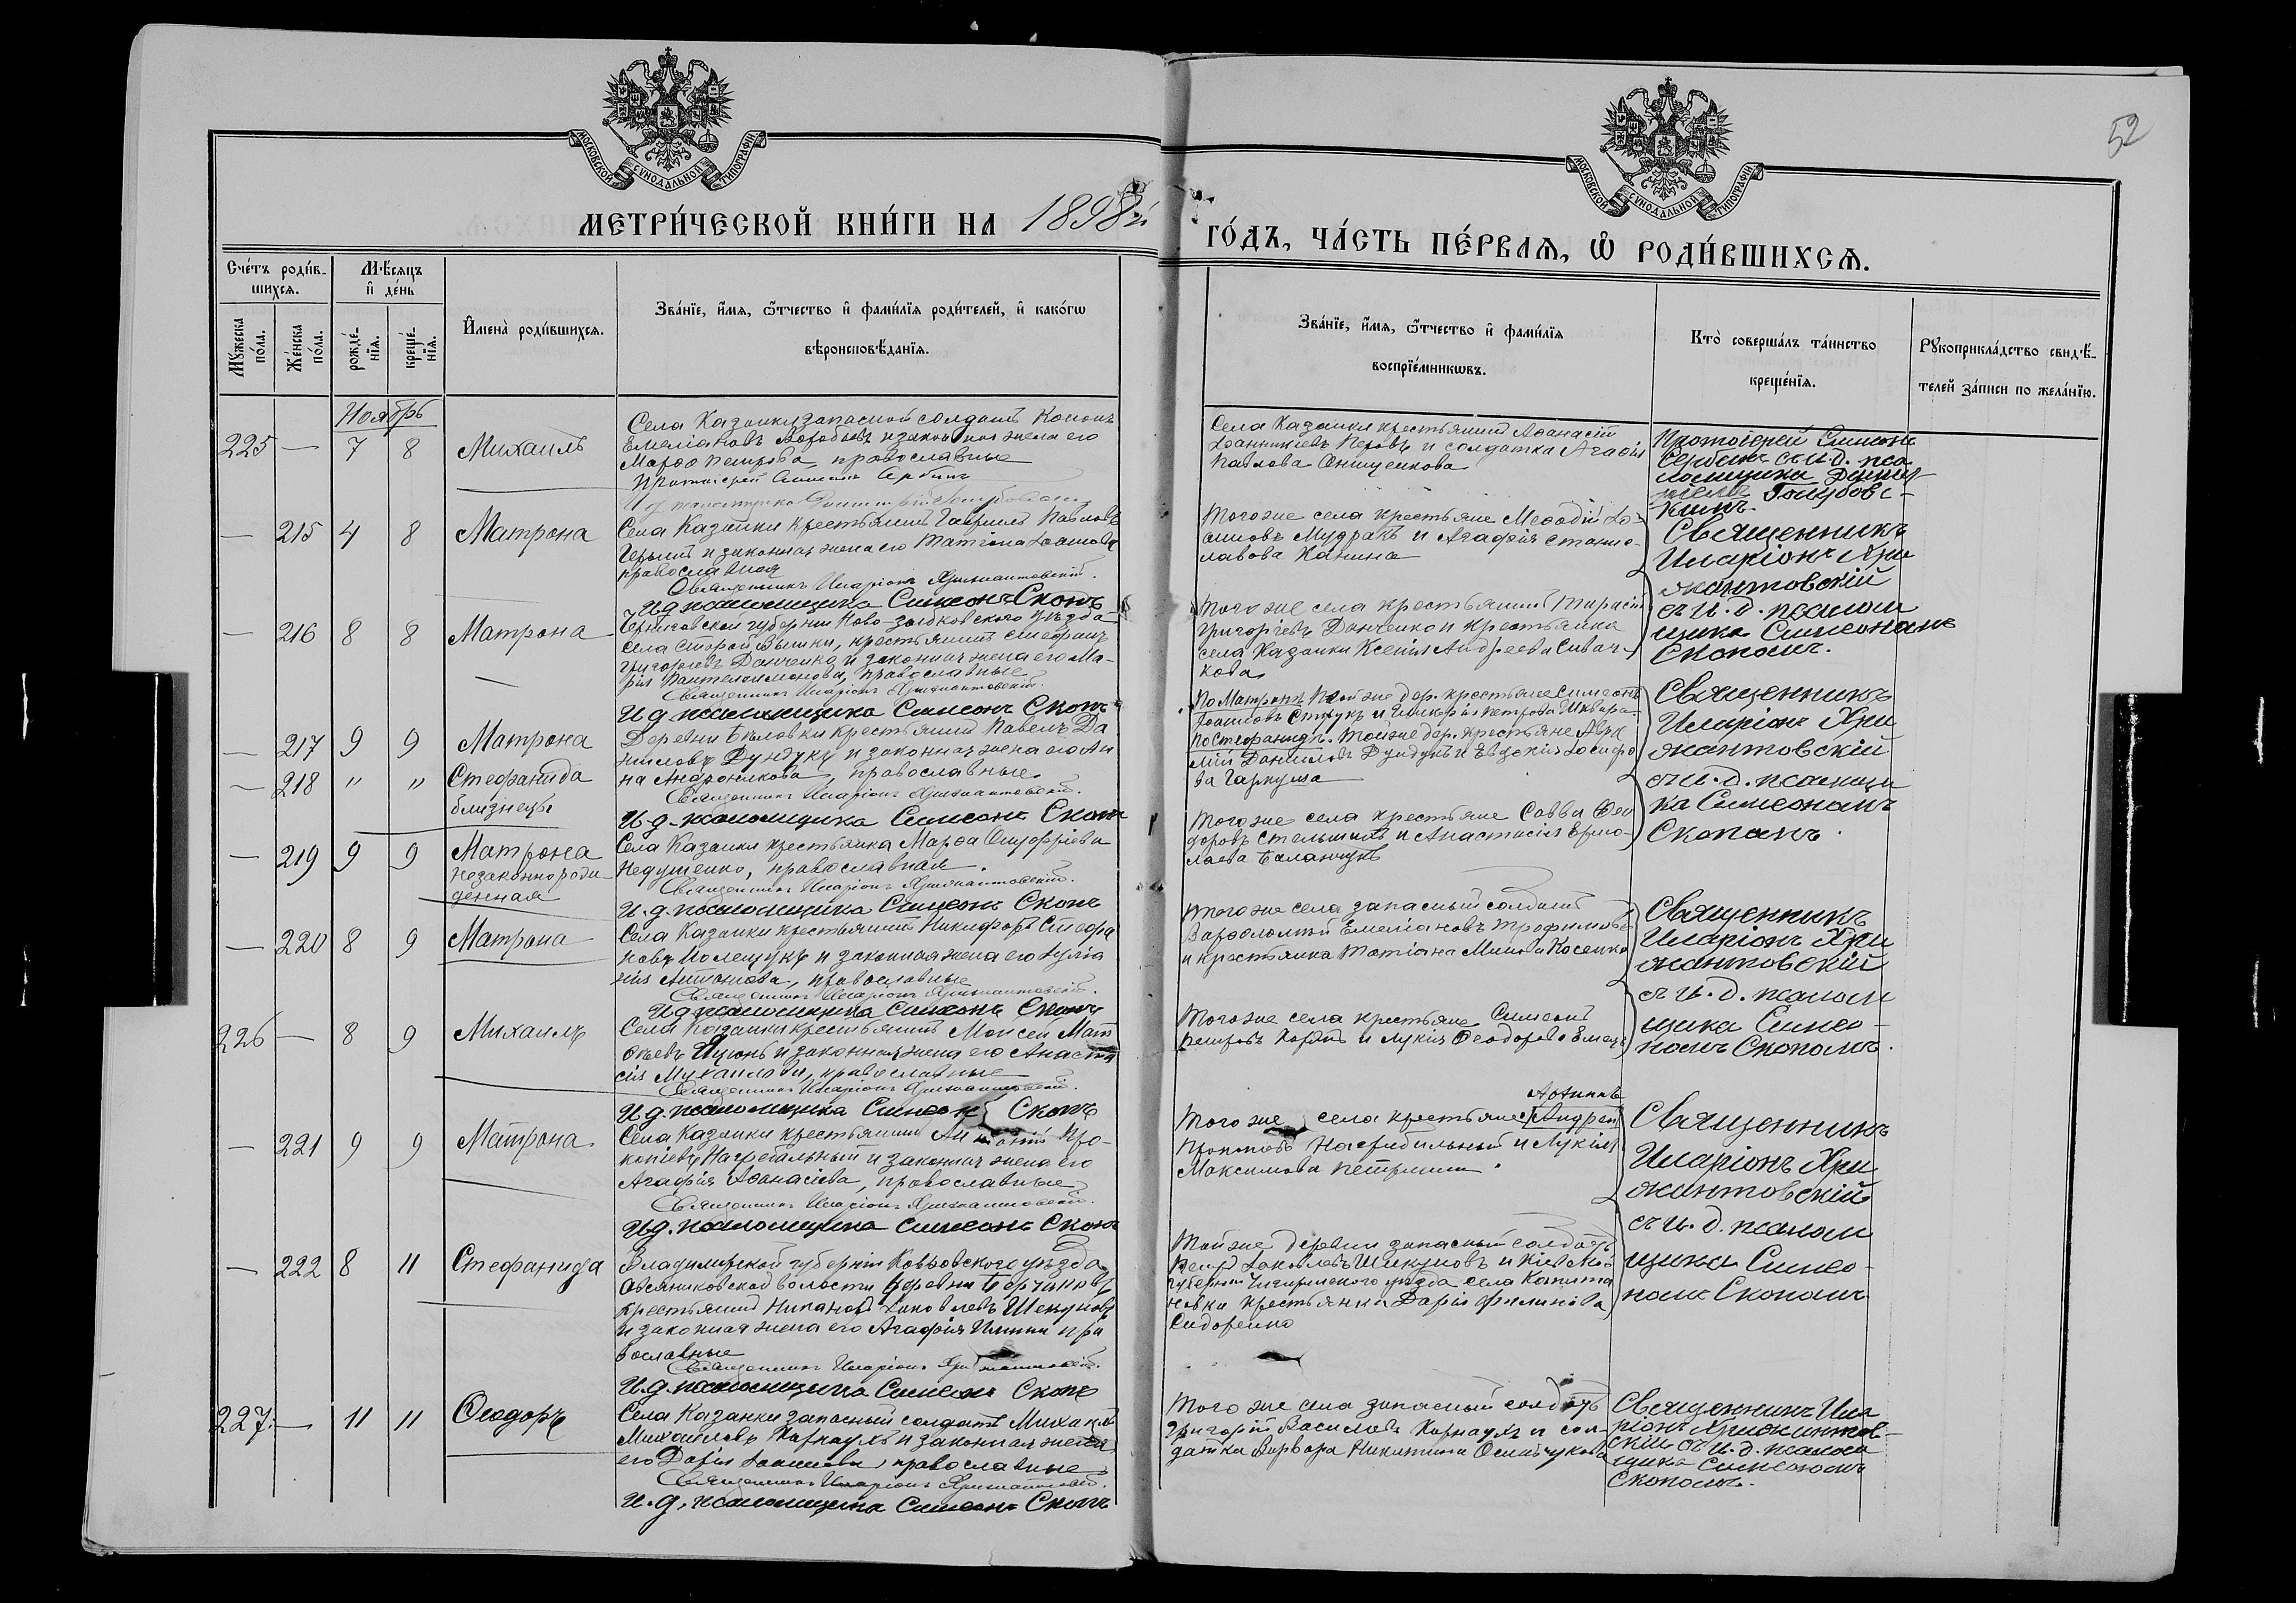 52
МОСКОВСКОЙ СУНОДАЛЬНОЙ ТИПОГРАФІИ
МОСКОВСКОЙ СУНОДАЛЬНОЙ ТИПОГРАФІИ
МЕТРИ́ЧЕСКОЙ КНИ́ГИ НА 1898й
ГО́ДЪ, ЧА́СТЬ ПЕ́РВАЯ, Ѡ҆ РОДИ́ВШИХСЯ.
Сче́тъ роди́в-
шихся.
Мѣ́сяцъ
и҆ де́нь
Мꙋ́жеска по́ла.
Же́нска по́ла.
рожде́-
нїя.
креще́-
нїя.
И҆мена̀ роди́вшихся.
Зва́нїе, и҆́мя, ѻ҆́тчество и҆ фами́лїя роди́телей, и҆ како́гѡ
вѣроисповѣ́данїя.
Зва́нїе, и҆́мя, ѻ҆́тчество и҆ фами́лїя
воспрїе́мникѡвъ.
Кто̀ соверша́лъ та́инство
креще́нїя.
Рꙋкоприкла́дство свидѣ́-
телей за́писи по жела́нїю.
Ноябрь
225 — 7 8 Михаилъ
Села Казанки запасной солдатъ Кононъ
Емеліановъ Воробьевъ и законная жена его
Марѳа Петрова, православные
Протоіерей Симеонъ Сербинъ
Села Казанки крестьянинъ Аѳанасій
Іоанникіевъ Перовъ и солдатка Агаѳія
Павлова Онищенкова
Протоіерей Симеонъ
Сербинъ съ и. д. пса
ломщика Димит
ріемъ Голубовс-
кимъ.
— 215 4 8 Матрона
Села Казанки крестьянинъ Гавріилъ Павловъ
и законная жена его Татіана Іоанова
православная
Священникъ Иларіонъ Крижантовскій.
И д псаломщика Симеонъ Скопъ
Того же села крестьяне Меѳодій Іо-
анновъ Мудракъ и Агафія Станис-
лавова Канина
Священникъ
Иларіонъ Кри
жантовскій
съ и. д. псалом
щика Симеономъ
Скопомъ.
— 216 8 8 Матрона
Черниговской губерніи Ново-зыбковского уѣзда
села Старой Вышки, крестьянинъ Стефанъ
Григоріевъ Данченко и законная жена его Ма-
рія Пантелеимонова, православные
Священникъ Иларіонъ Крижантовскій.
И д псаломщика Симеонъ Скопъ
Того же села крестьянинъ Тарасій
Григоріевъ Данченко и крестьянка
села Казанки Ксенія Андреева Сивач-
кова
— 217 9 9 Матрона
— 218 " " Стефанида
близнецы
Деревни Бѣловки крестьянинъ Павелъ Да
ниловъ Дундукъ и законная жена его Ан
на Андроникова, православные.
Священникъ Иларіонъ Крижантовскій.
И. д. псаломщика Симеонъ Скопъ
По Матронѣ той же дер. крестьяне Симеонъ
Іоанновъ Струкъ и Гликерія Петрова Шквира.
По Стефанидѣ. Той же дер. крестьяне
Даниловъ Дундукъ и Евдокія Іосифо
ва Гаркуша
Священникъ
Иларіонъ Кри
жантовскій
съ и. д. псаломщи
ка Симеономъ
Скопомъ.
— 219 9 9 Матрона
незаконнорож-
денная
Села Казанки крестьянка Марѳа Онуфріева
Недушенко, православная.
Священникъ Иларіонъ Крижантовскій.
И. д. псаломщика Симеонъ Скопъ
Того же села крестьяне Савва Ѳео
доровъ Стельмахъ и Анастасія Ермо-
лаева Баланчукъ
— 220 8 9 Матрона
Села Казанки крестьянинъ Никифоръ Стефа
новъ Полещукъ и законная жена его Іуліа
нія Антонова, православные
Священникъ Иларіонъ Крижантовскій.
И д псаломщика Симеонъ Скопъ
Того же села запасный солдатъ
Варѳоломей Емеліановъ Трофимовъ
и крестьянка Татіана Косенко
Священникъ
Иларіонъ Кри
жантовскій
съ и. д. псалом
щика Симео-
номъ Скопомъ.
226 — 8 9 Михаилъ
Села Казанки крестьянинъ Моисей Мат
ѳеевъ и законная жена его Анаста
сія Михаилова, православные
Священникъ Иларіонъ Крижантовскій.
И д. псаломщика Симеонъ Скопъ
Того же села крестьяне Симеонъ
Петровъ и Лукія Ѳеодорова
— 221 9 9 Матрона
Села Казанки крестьянинъ Про-
копіевъ Нагребельный и законная жена его
Агафія Аѳанасіева, православные
Священникъ Иларіонъ Крижантовскій.
И д. псаломщика Симеонъ Скопъ
Того же села крестьяне Андрей
Нагребельный и Лукія
Максимова
Священникъ
Иларіонъ Кри
жантовскій
съ и. д. псалом
щика Симео-
номъ Скопомъ
— 222 8 11 Стефанида
Владимірской губерніи Ковровского уѣзда
Овсяниковской волости деревни
крестьянинъ Никаноръ Іаковлевъ Шекуновъ
и законная жена его Агафія пра
вославные
Священникъ Иларіонъ Крижантовскій.
И. д. псаломщика Симеонъ Скопъ
Той же деревни запасный солдатъ
Петръ Іаковлевъ Шекуновъ и Кіевской
губерніи Чигиринского уѣзда села Капита
новки крестьянка Дарія Филипова
Сидоренко
227. — 11 11 Ѳеодоръ
Села Казанки запасный солдатъ Михаилъ
Михаиловъ Карнаухъ и законная жена
его Дарія Іоаннова, православные
Священникъ Иларіонъ Крижантовскій.
И. д. псаломщика Симеонъ Скопъ
Того же села запасный солдатъ
Григорій Василіевъ Карнаухъ и сол-
датка Варвара Никитина
Священникъ Ила
ріонъ Крижантов-
скій съ и. д. псалом
щика Симеономъ
Скопомъ.